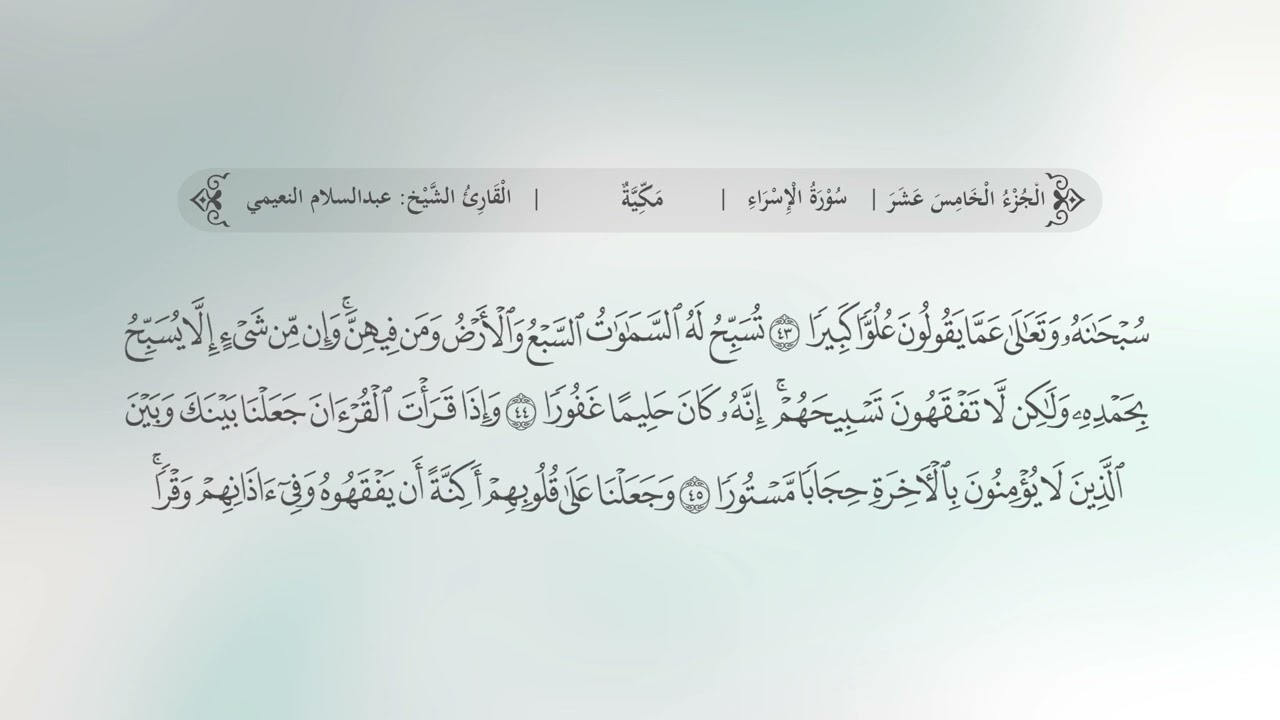 الْجُزْءُ الْخَامِسَ عَشَرَ | سُوْرَةُ الْإِسْرَاءِ | مَكِّيَّةٌ | الْقَارِئُ الشَّيْخ: عبدالسلام النعيمي
سُبْحَٰنَهُۥ وَتَعَٰلَىٰ عَمَّا يَقُولُونَ عُلُوًّا كَبِيرًا ٤٣ تُسَبِّحُ لَهُ ٱلسَّمَٰوَٰتُ ٱلسَّبْعُ وَٱلْأَرْضُ وَمَن فِيهِنَّۚ وَإِن مِّن شَىْءٍ إِلَّا يُسَبِّحُ
بِحَمْدِهِۦ وَلَٰكِن لَّا تَفْقَهُونَ تَسْبِيحَهُمْۚ إِنَّهُۥ كَانَ حَلِيمًا غَفُورًا ٤٤ وَإِذَا قَرَأْتَ ٱلْقُرْءَانَ جَعَلْنَا بَيْنَكَ وَبَيْنَ
ٱلَّذِينَ لَا يُؤْمِنُونَ بِٱلْأَخِرَةِ حِجَابًا مَّسْتُورًا ٤٥ وَجَعَلْنَا عَلَىٰ قُلُوبِهِمْ أَكِنَّةً أَن يَفْقَهُوهُ وَفِىٓ ءَاذَانِهِمْ وَقْرًاۚ